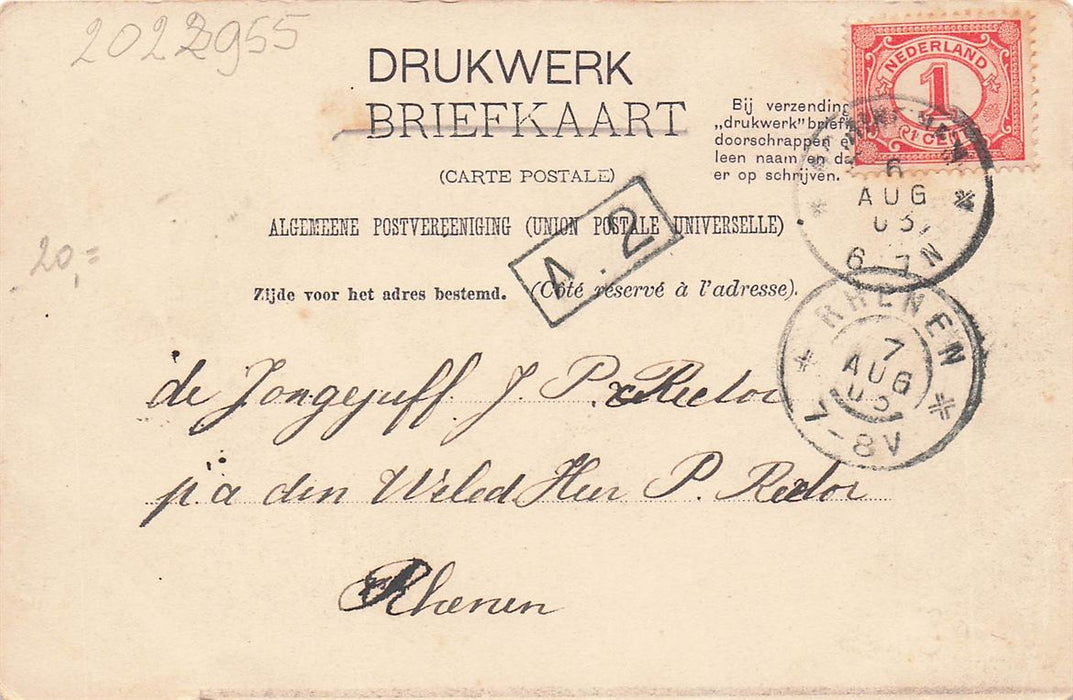 2022955
DRUKWERK
BRIEFKAART
(CARTE POSTALE)
ALGEMEENE POSTVEREENIGING (UNION POSTALE UNIVERSELLE)
Zijde voor het adres bestemd. (Côté réservé à l'adresse).
Bij verzending
„drukwerk" brief
doorschrappen e
leen naam en da
er op schrijven.
NEDERLAND
1
1 CENT
6
AUG
03
6-7N
RHENEN
7
AUG
03
7-8V
A.2
20,=
de Jongejuff J. P. Rector
p/a den WelEd Heer P. Rector
Rhenen